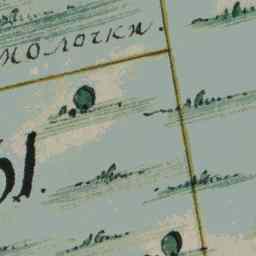 молочки.
ы.